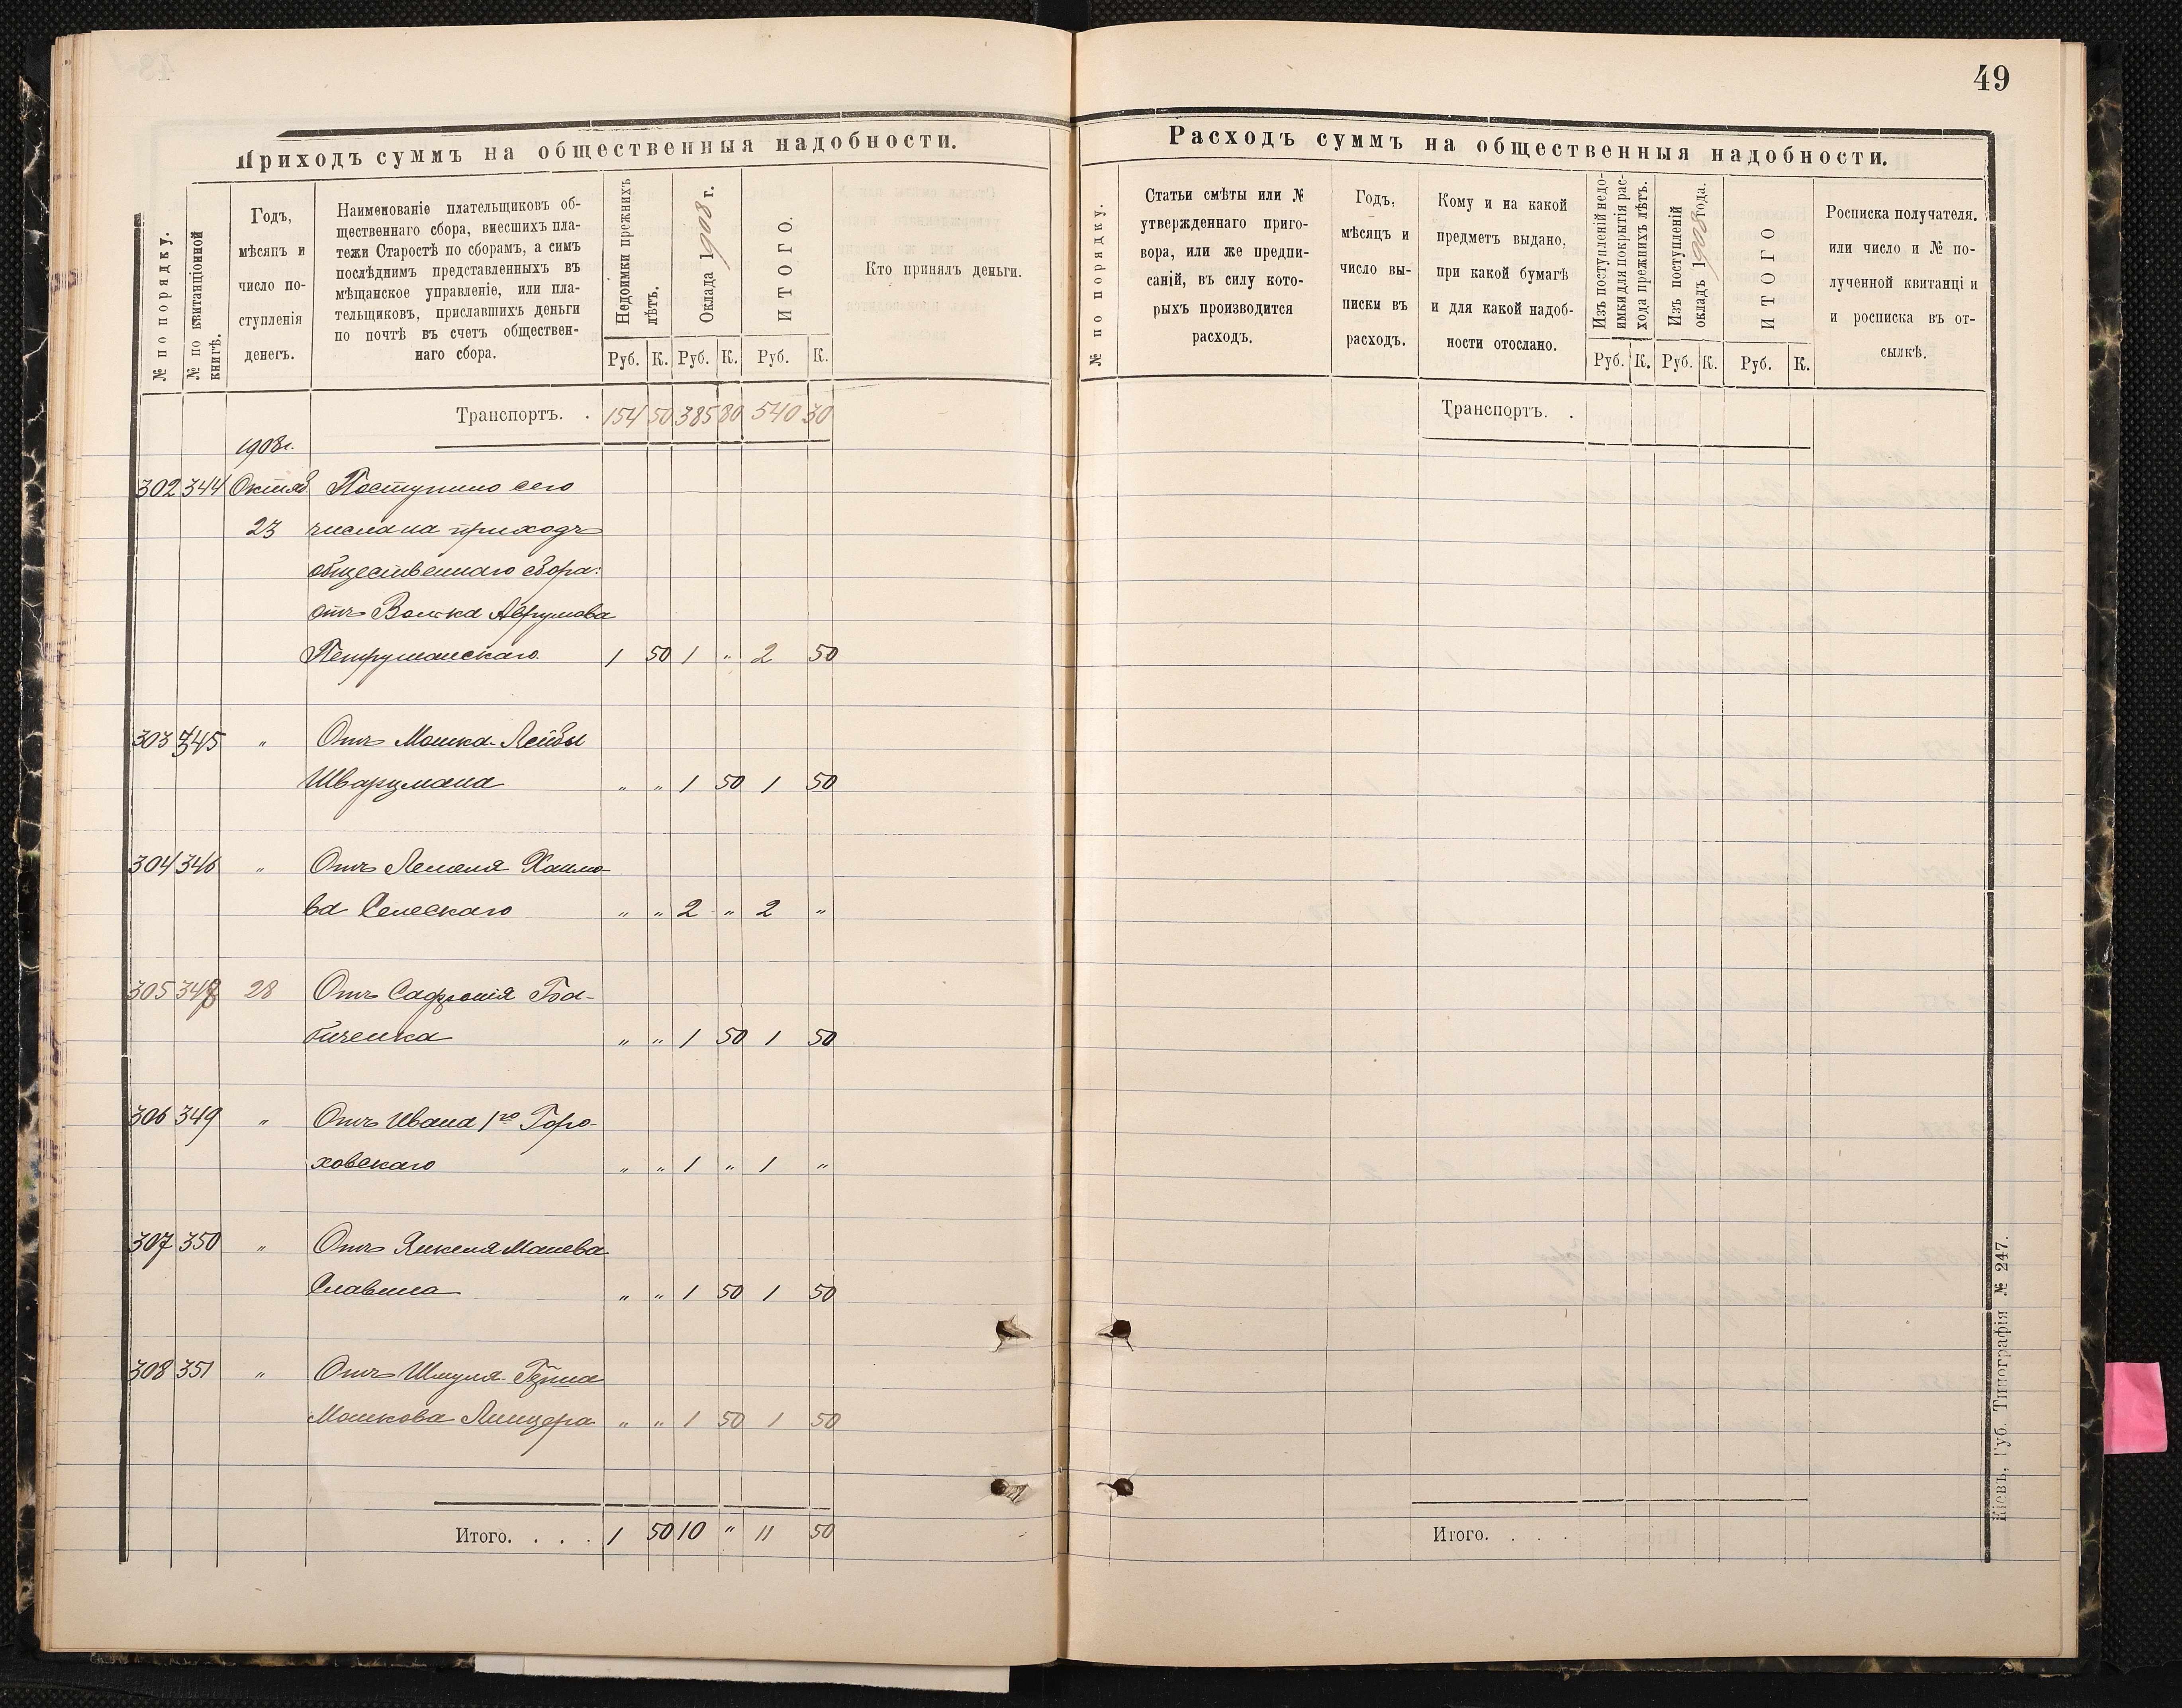 49
Приходъ суммъ на общественныя надобности.
№ по порядку.
№ по квитанціонной
книгѣ.
Годъ,
мѣсяцъ и
число по-
ступленія
денегъ.
Наименованіе плательщиковъ об-
щественнаго сбора, внесшихъ пла-
тежи Старостѣ по сборамъ, а симъ
послѣднимъ представленныхъ въ
мѣщанское управленіе, или пла-
тельщиковъ, приславшихъ деньги
по почтѣ въ счетъ обществен-
наго сбора.
Недоимки прежнихъ
лѣтъ.
Оклада 1908 г.
ИТОГО.
Кто принялъ деньги.
Руб. К. Руб. К. Руб. К.
Транспортъ. . 154 50 385 80 540 30
1908 г.
302 344 Октяб. Поступило сего
23 числа на приходъ
общественнаго сбора:
отъ Волька Аврумова
Петрушанскаго. 1 50 1 „ 2 50
303 345 „ Отъ Мошка-Лейбы
Шварцмана „ „ 1 50 1 50
304 346 „ Отъ Лемеля Хаимо-
ва Селескаго „ „ 2 „ 2 „
305 348 28 Отъ Софронія Ба-
биченка „ „ 1 50 1 50
306 349 „ Отъ Ивана 1го Горо-
ховскаго „ „ 1 „ 1 „
307 350 „ Отъ Янкеля Маnева
Славина „ „ 1 50 1 50
308 351 „ Отъ Шмуля-
Мошкова „ „ 1 50 1 50
Итого. . . . 1 50 10 „ 11 50
Расходъ суммъ на общественныя надобности.
№ по порядку.
Статьи смѣты или №
утвержденнаго приго-
вора, или же предпи-
саній, въ силу кото-
рыхъ производится
расходъ.
Годъ,
мѣсяцъ и
число вы-
писки въ
расходъ.
Кому и на какой
предметъ выдано,
при какой бумагѣ
и для какой надоб-
ности отослано.
Изъ поступленій недо-
имки для покрытія рас-
хода прежнихъ лѣтъ.
Изъ поступленій
окладъ 1908 года.
ИТОГО
Росписка получателя.
или число и № по-
лученной квитанці и
и росписка въ от-
сылкѣ.
Руб. К. Руб. К. Руб. К.
Транспортъ. .
Итого. . . .
Кіевъ, Губ. Типографія № 247.